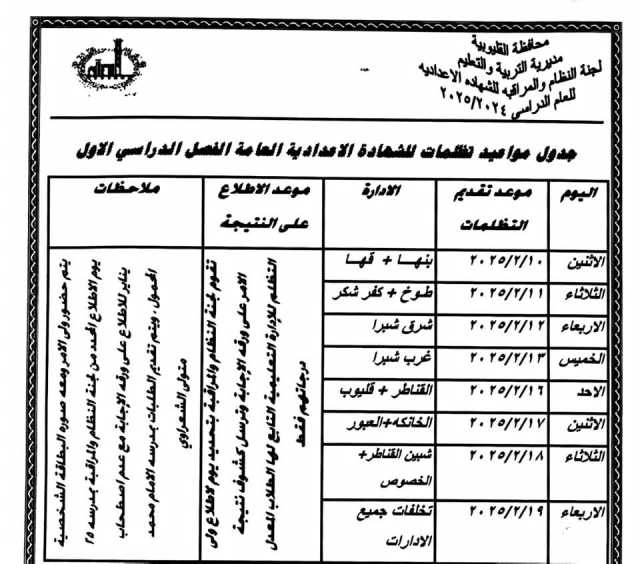 محافظة القليوبية
مديرية التربية والتعليم
لجنة النظام والمراقبه للشهاده الاعداديه
للعام الدراسي ٢٠٢٥/٢٠٢٤
جدول مواعيد تظلمات للشهادة الاعدادية العامة الفصل الدراسي الاول
اليوم
موعد تقديم
التظلمات
الادارة
موعد الاطلاع
على النتيجة
ملاحظات
الاثنين
٢٠٢٥/٢/١٠
بنهـــا + قهـا
الثلاثاء
٢٠٢٥/٢/١١
طوخ + كفر شكر
الاربعاء
٢٠٢٥/٢/١٢
شرق شبرا
الخميس
٢٠٢٥/٢/١٣
غرب شبرا
الاحد
٢٠٢٥/٢/١٦
القناطر + قليوب
الاثنين
٢٠٢٥/٢/١٧
الخانكه+العبور
الثلاثاء
٢٠٢٥/٢/١٨
شبين القناطر+
الخصوص
الاربعاء
٢٠٢٥/٢/١٩
تخلفات جميع
الادارات
تقوم لجنة النظام والمراقبة بتحديد يوم لاطلاع ولى
الامر على ورقه الإجابة وترسل كشوف نتيجة
التظلم للإدارة التعليمية التابع لها الطلاب المعدل
درجاتهم فقط
يتم حضور ولى الامر ومعه صوره البطاقة الشخصية
يوم الاطلاع المحدد من لجنة النظام والمراقبة بمدرسه ٢٥
يناير للاطلاع على ورقه الإجابة مع عدم اصطحاب
المحمول . ويتم تقديم الطلبات بمدرسه الامام محمد
متولى الشعراوي